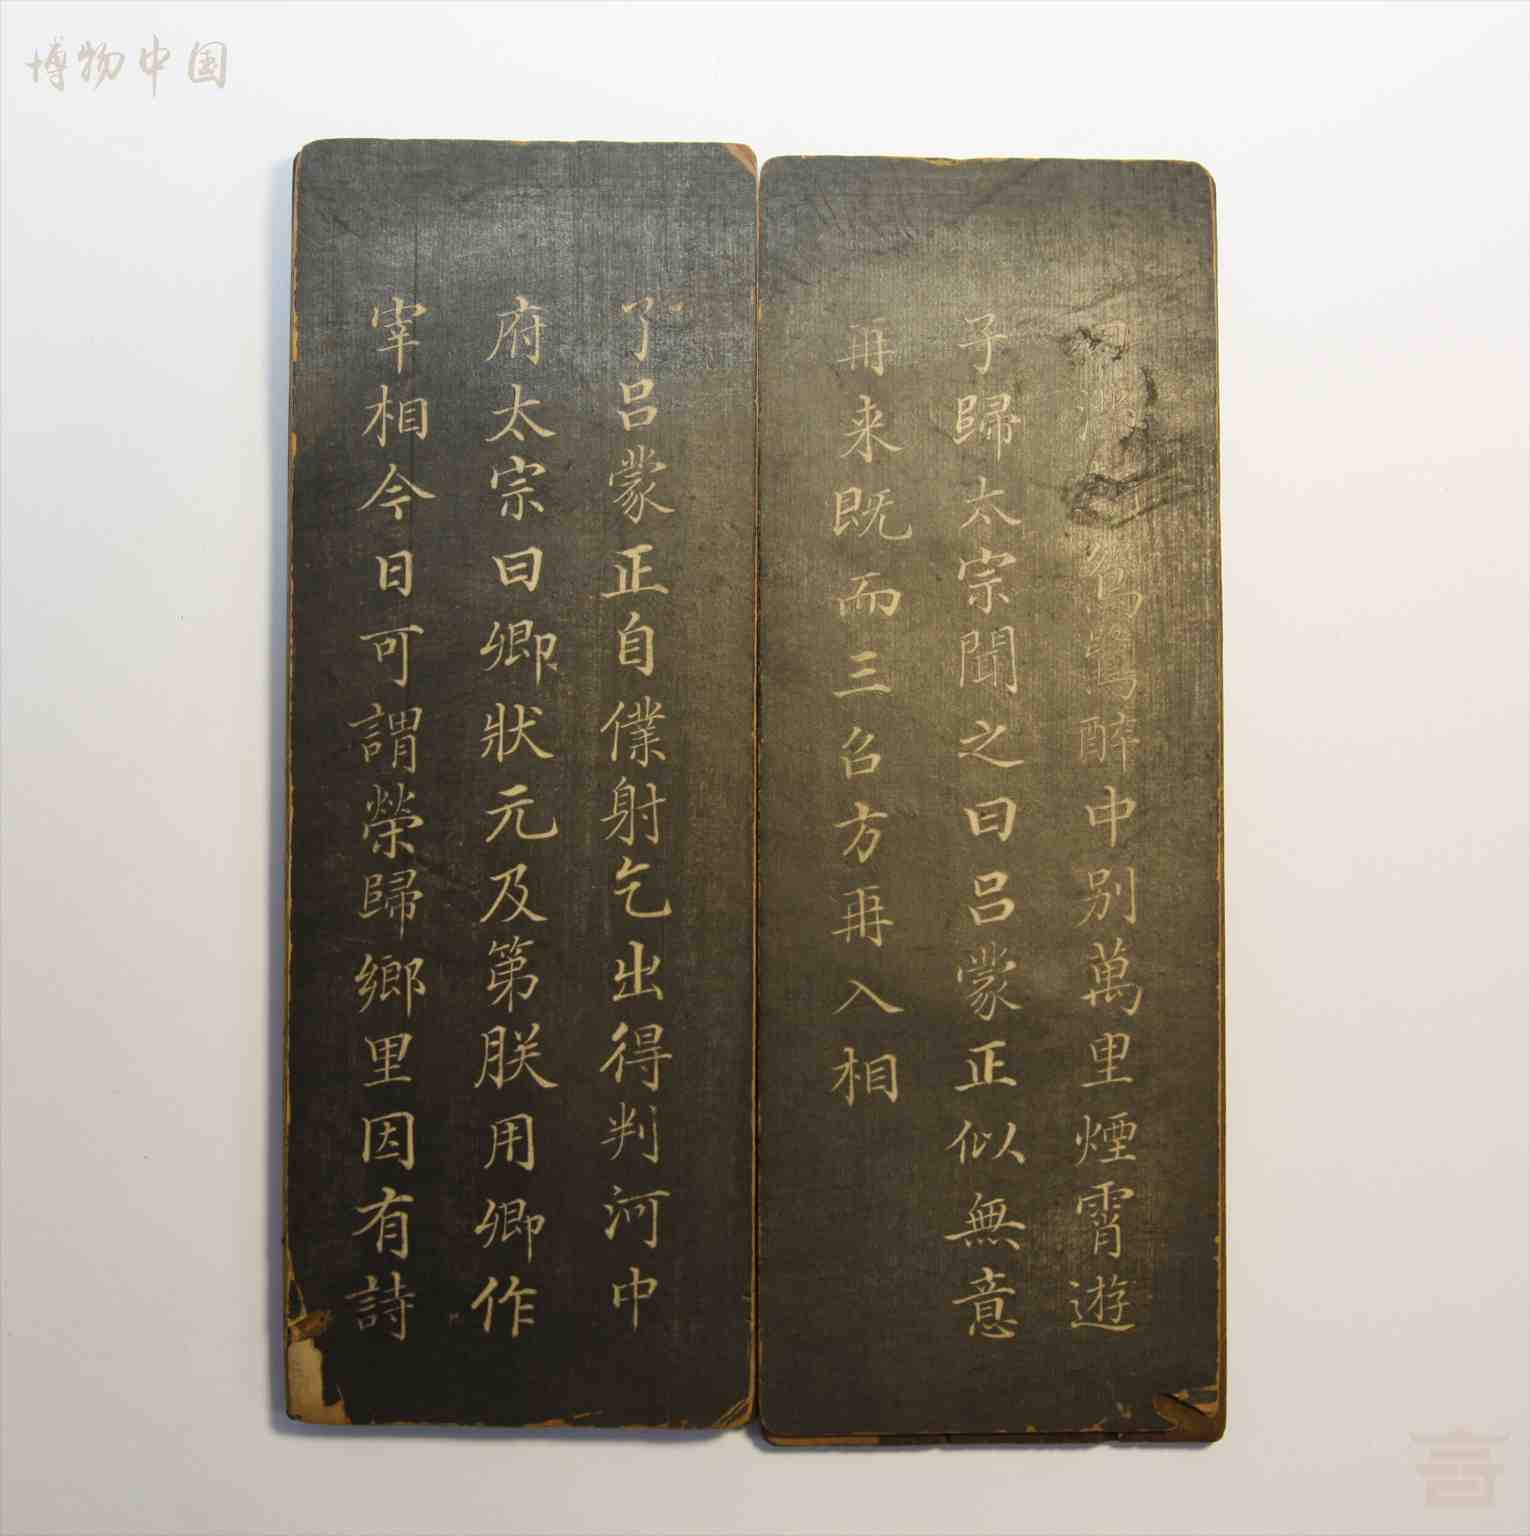 博物中国
鴛鷺醉中別萬里煙霄遊
子歸太宗聞之曰呂蒙正似無意
再来既而三召方再入相
了呂蒙正自僕射乞出得判河中
府太宗曰卿狀元及第朕用卿作
宰相今日可謂榮歸鄉里因有詩